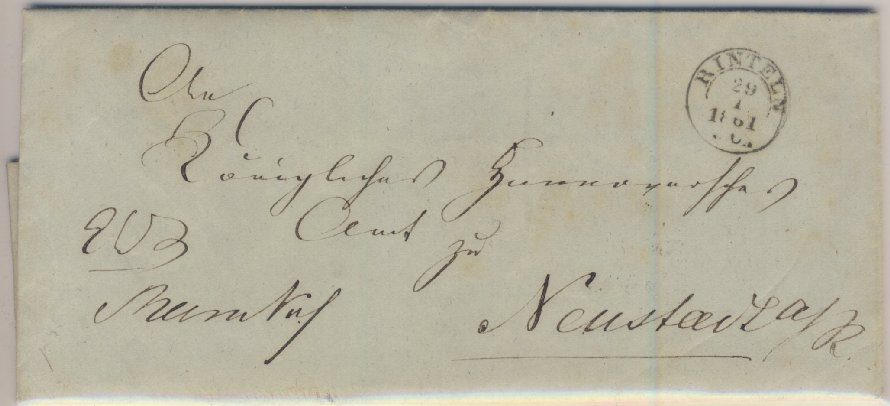 An
RINTELN
29
1
1861
Königliches Hannoversches
Amt
zu
Neustadt a/R.